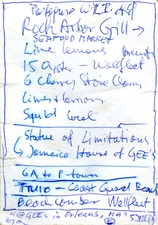 Rock Arbor Grill
SEAFOOD MARKET
Lime lemons
15 oyster - Wellfleet
6 Cherry Stone Clams
Limes lemon
Squid
Statue of Limitations
Jamaica House of GEES
GA to P-town
Coast Guard Beach
Beachcomber Wellfleet
"@GEES in Orleans, MA"